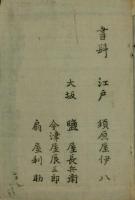 書肆
江戸 須原屋伊八
大坂 鹽屋長兵衛
今津屋辰三郎
扇屋利助